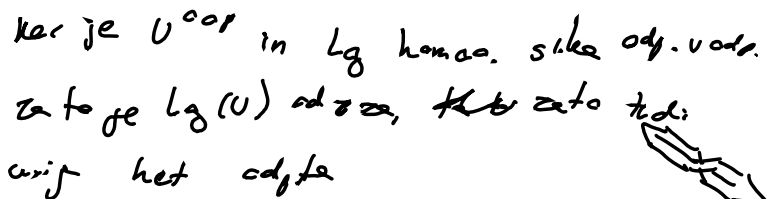 ker je U^odp in Lg homeo. slika odp. v odp.
zato je Lg(U) odprta, zato tudi
unija het odprta